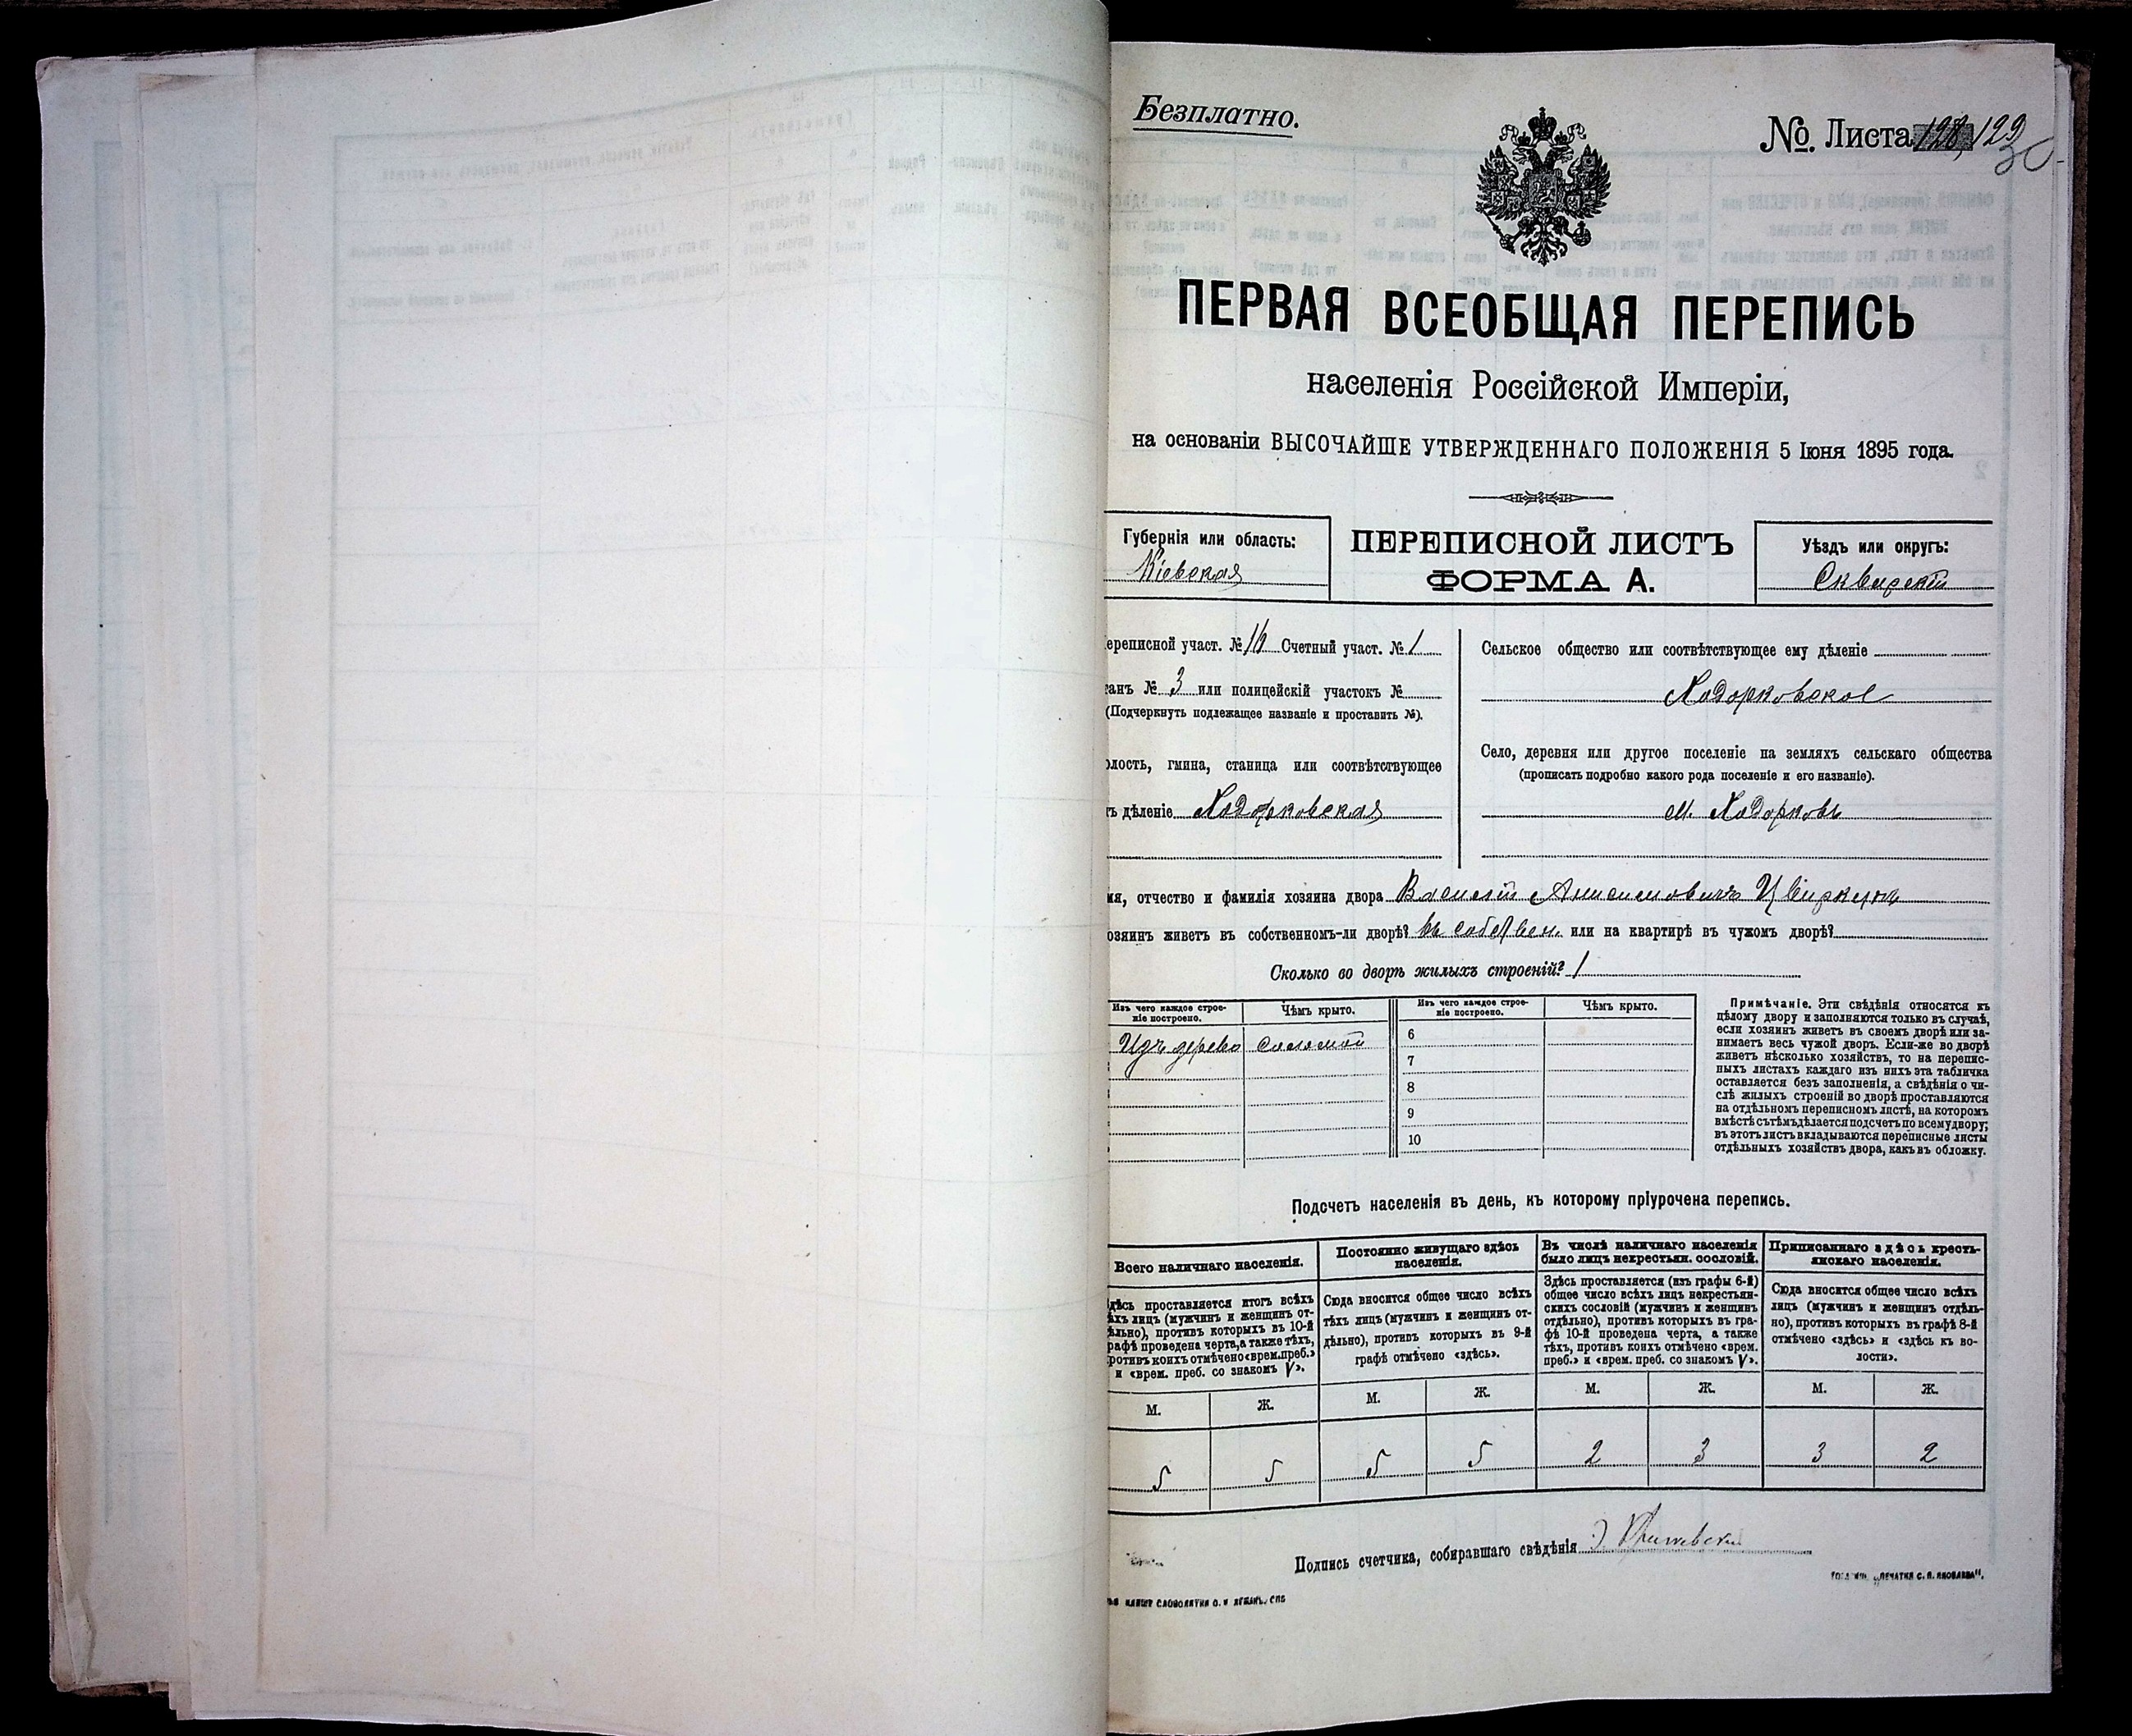 Безплатно.
№. Листа 128, 129
30
ПЕРВАЯ ВСЕОБЩАЯ ПЕРЕПИСЬ
населенія Россійской Имперіи,
на основаніи ВЫСОЧАЙШЕ УТВЕРЖДЕННАГО ПОЛОЖЕНІЯ 5 Іюня 1895 года.
Губернія или область:
Кіевская
ПЕРЕПИСНОЙ ЛИСТЪ
ФОРМА А.
Уѣздъ или округъ:
Сквирскій
ереписной участ. № 16 Счетный участ. № 1
анъ № 3 или полицейскій участокъ №
(Подчеркнуть подлежащее названіе и проставить №).
олость, гмина, станица или соотвѣтствующее
ъ дѣленіе Ходорковская
Сельское общество или соотвѣтствующее ему дѣленіе
Ходорковское
Село, деревня или другое поселеніе на земляхъ сельскаго общества
(прописать подробно какого рода поселеніе и его названіе).
м. Ходорковъ
мя, отчество и фамилія хозяина двора Василій Анисимовичъ Цвиркунъ
озяинъ живетъ въ собственномъ-ли дворѣ? въ собствен. или на квартирѣ въ чужомъ дворѣ?
Сколько во дворѣ жилыхъ строеній? 1
Изъ чего каждое строе-
ніе построено.
Чѣмъ крыто.
Изъ чего каждое строе-
ніе построено.
Чѣмъ крыто.
Изъ дерева соломой
6
7
8
9
10
Примѣчаніе. Эти свѣдѣнія относятся къ
цѣлому двору и заполняются только въ случаѣ,
если хозяинъ живетъ въ своемъ дворѣ или за-
нимаетъ весь чужой дворъ. Если-же во дворѣ
живетъ нѣсколько хозяйствъ, то на перепис-
ныхъ листахъ каждаго изъ нихъ эта табличка
оставляется безъ заполненія, а свѣдѣнія о чи-
слѣ жилыхъ строеній во дворѣ проставляются
на отдѣльномъ переписномъ листѣ, на которомъ
вмѣстѣ съ тѣмъ дѣлается подсчетъ по всему двору;
въ этотъ листъ вкладываются переписные листы
отдѣльныхъ хозяйствъ двора, какъ въ обложку.
Подсчетъ населенія въ день, къ которому пріурочена перепись.
Всего наличнаго населенія.
дѣсь проставляется итогъ всѣхъ
ѣхъ лицъ (мужчинъ и женщинъ от-
ѣльно), противъ которыхъ въ 10-й
рафѣ проведена черта, а также тѣхъ,
ротивъ коихъ отмѣчено «врем. преб.»
и «врем. преб. со знакомъ V».
Постоянно живущаго здѣсь
населенія.
Сюда вносится общее число всѣхъ
тѣхъ лицъ (мужчинъ и женщинъ от-
дѣльно), противъ которыхъ въ 9-й
графѣ отмѣчено «здѣсь».
Въ числѣ наличнаго населенія
было лицъ некрестьян. сословій.
Здѣсь проставляется (изъ графы 6-й)
общее число всѣхъ лицъ некрестьян-
скихъ сословій (мужчинъ и женщинъ
отдѣльно), противъ которыхъ въ гра-
фѣ 10-й проведена черта, а также
тѣхъ, противъ коихъ отмѣчено «врем.
преб.» и «врем. преб. со знакомъ V».
Приписаннаго здѣсь кресть-
янскаго населенія.
Сюда вносится общее число всѣхъ
лицъ (мужчинъ и женщинъ отдѣль-
но), противъ которыхъ въ графѣ 8-й
отмѣчено «здѣсь» и «здѣсь въ во-
лости».
М. Ж. М. Ж. М. Ж. М. Ж.
5 5 5 5 2 3 3 2
Подпись счетчика, собиравшаго свѣдѣнія
"ПЕЧАТНЯ С. П. ЯКОВЛЕВА".